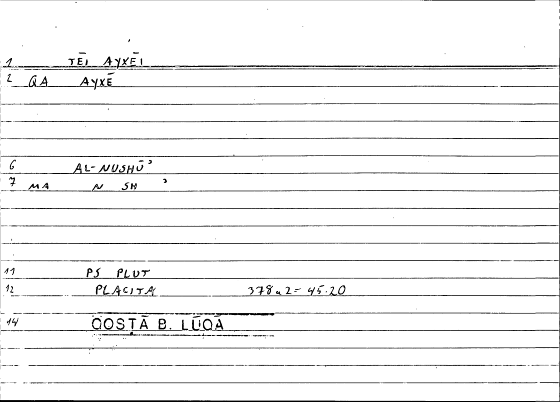 1 TĒI AYXĒI
2 QA AYXĒ
6 AL-NUSHŪʾ
7 MA N SH ʾ
11 PS PLUT
12 PLACITA 378a2 = 45.20
14 QOSṬĀ B. LŪQĀ